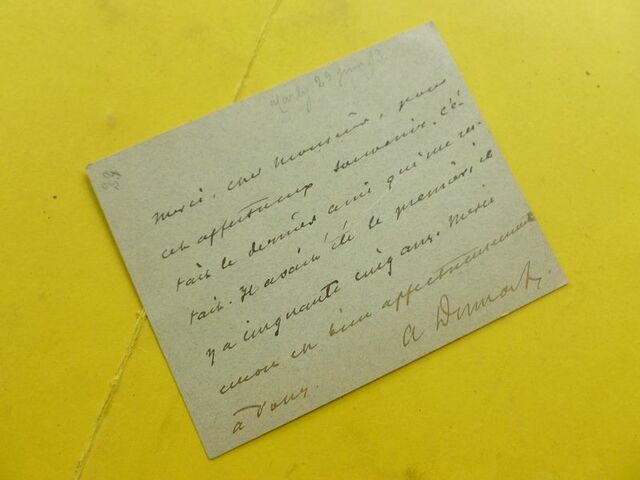 Marly 29 juin 93
29
Merci, cher Monsieur, pour
cet affectueux souvenir. C'é-
tait le dernier ami qui me res-
tait. Il avait été le premier, il
y a cinquante cinq ans. Merci
encore et bien affectueusement
à vous.
A Dumas f.